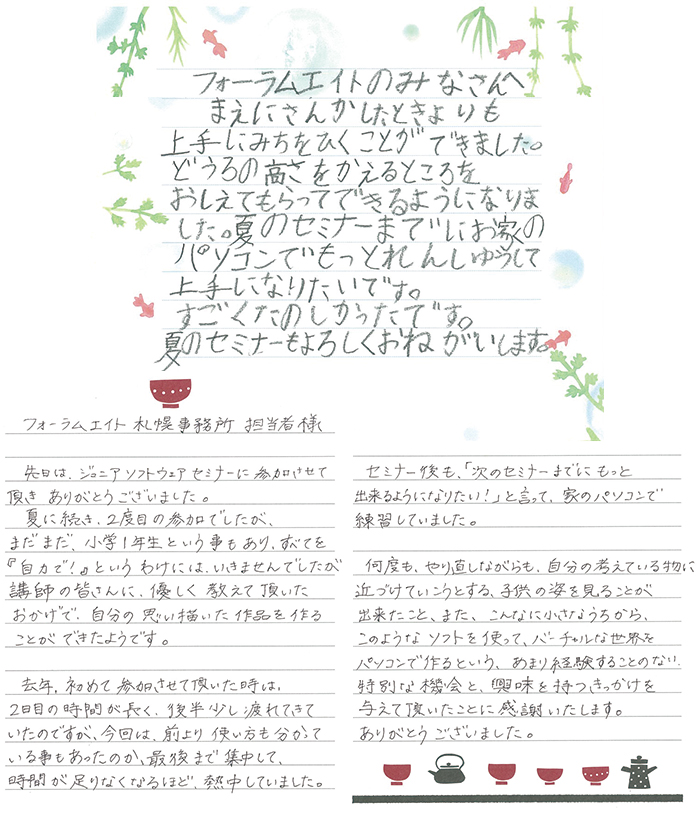 フォーラムエイトのみなさんへ
まえにさんかしたときよりも
上手にみちをひくことができました。
どうろの高さをかえるところを
おしえてもらってできるようになりま
した。夏のセミナーまでにお家の
パソコンでもっとれんしゅうして
上手になりたいです。
すごくたのしかったです。
夏のセミナーもよろしくおねがいします。
フォーラムエイト 札幌事務所 担当者様
先日は、ジュニアソフトウェアセミナーに参加させて
頂き ありがとうございました。
夏に続き、2度目の参加でしたが、
まだまだ、小学1年生という事もあり、すべてを
『自力で!』というわけには、いきませんでしたが
講師の皆さんに、優しく教えて頂いた
おかげで、自分の思い描いた作品を作る
ことができたようです。
去年、初めて参加させて頂いた時は、
2日目の時間が長く、後半少し疲れてきて
いたのですが、今回は、前より使い方も分かって
いる事もあったのか、最後まで集中して、
時間が足りなくなるほど、熱中していました。
セミナー後も、「次のセミナーまでにもっと
出来るようになりたい!」と言って、家のパソコンで
練習していました。
何度も、やり直しながらも、自分の考えている物に
近づけていこうとする、子供の姿を見ることが
出来たこと、また、こんなに小さなうちから、
このようなソフトを使って、バーチャルな世界を
パソコンで作るという、あまり経験することのない、
特別な機会と、興味を持つきっかけを
与えて頂いたことに感謝いたします。
ありがとうございました。